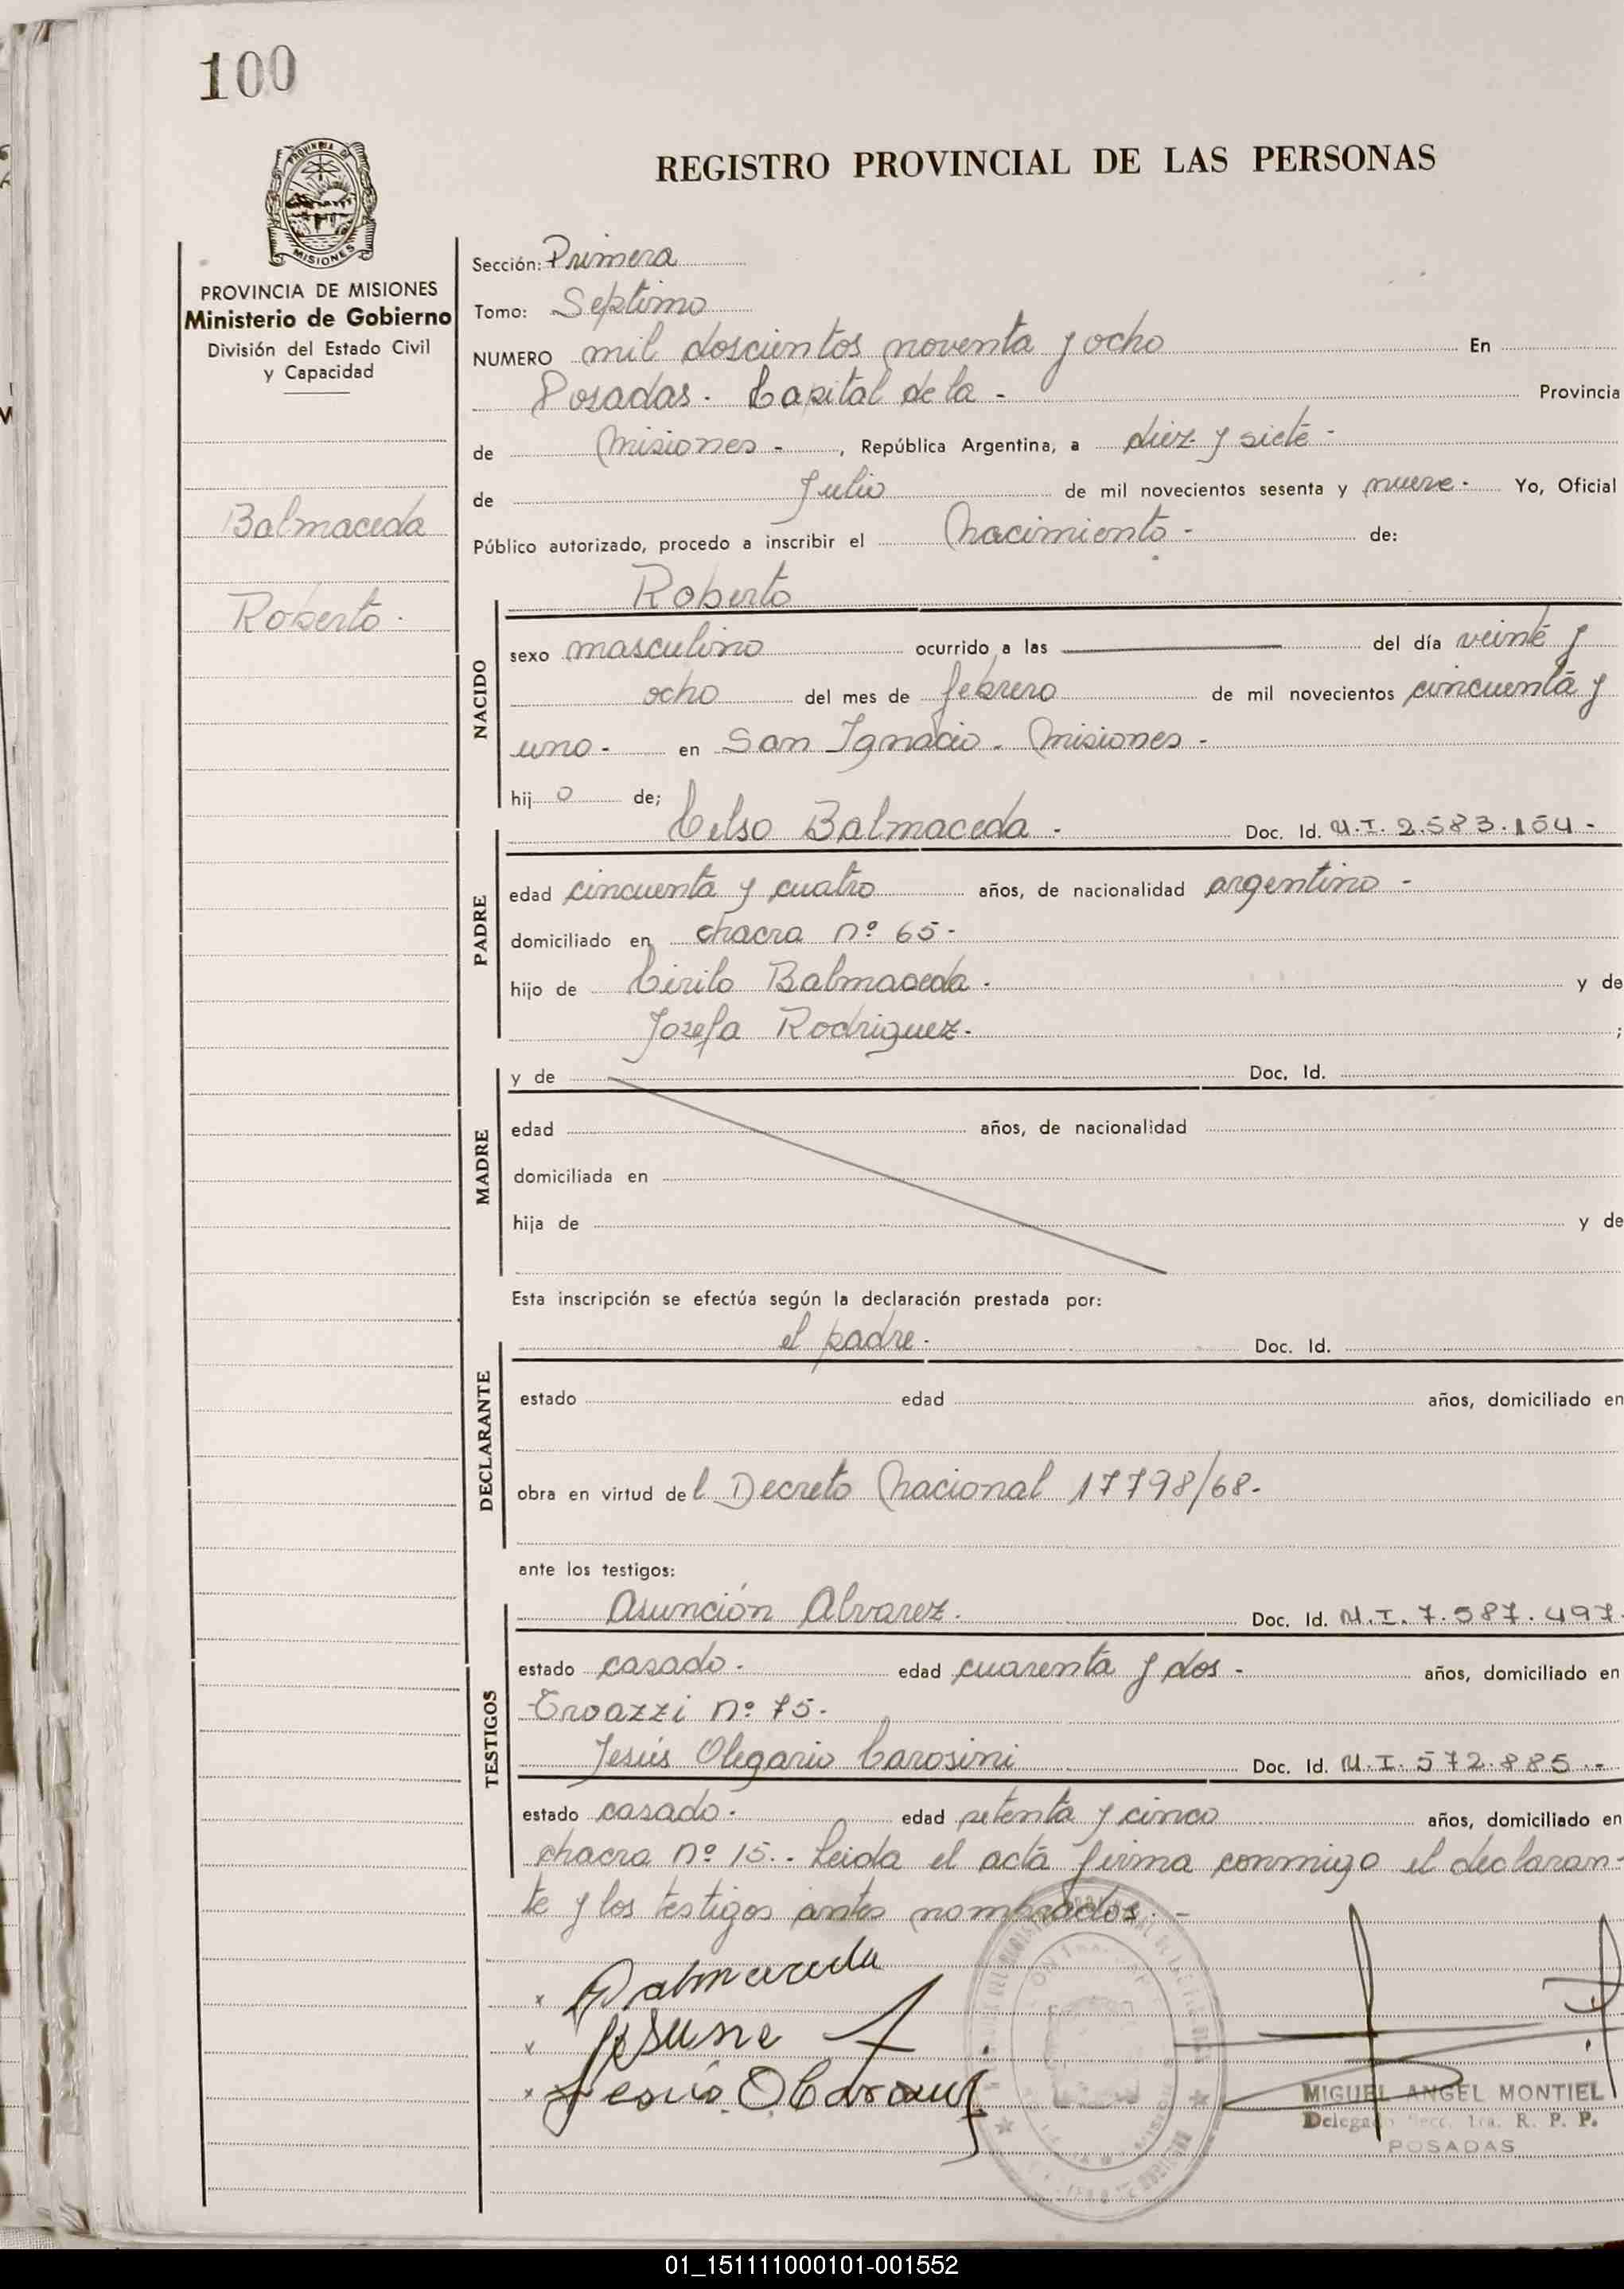 100
REGISTRO PROVINCIAL DE LAS PERSONAS
PROVINCIA DE
MISIONES
PROVINCIA DE MISIONES
Ministerio de Gobierno
División del Estado Civil
y Capacidad
Balmaceda
Roberto.
Sección: Primera
Tomo: Septimo
NUMERO mil doscientos noventa y ocho En
Posadas. Capital de la - Provincia
de Misiones -, República Argentina, a diez y siete -
de Julio de mil novecientos sesenta y nueve - Yo, Oficial
Público autorizado, procedo a inscribir el Nacimiento - de:
NACIDO
Roberto
sexo masculino ocurrido a las del día veinte y
ocho del mes de febrero de mil novecientos cincuenta y
uno - en San Ignacio - Misiones -
hij o de;
PADRE
Celso Balmaceda - Doc. Id. M.I. 2.583.154 -
edad cincuenta y cuatro años, de nacionalidad argentino -
domiciliado en chacra nº 65 -
hijo de Cirilo Balmaceda - y de
Josefa Rodriguez - ;
MADRE
y de Doc. Id.
edad años, de nacionalidad
domiciliada en
hija de y de
Esta inscripción se efectúa según la declaración prestada por:
DECLARANTE
el padre - Doc. Id.
estado edad años, domiciliado en
obra en virtud del Decreto Nacional 17798/68-
ante los testigos:
TESTIGOS
Asunción Alvarez. Doc. Id. M.I. 7.587.497-
estado casado - edad cuarenta y dos - años, domiciliado en
nº 75 -
Jesús Olegario Carosini Doc. Id. M.I. 572.885.-
estado casado - edad setenta y cinco años, domiciliado en
chacra nº 15.- Leida el acta firma conmigo el declaran-
te y los testigos antes nombrados. -
x Balmaceda
x
x Jesús O
MIGUEL ANGEL MONTIEL
Delegado Secc. 1ra. R. P. P.
POSADAS
01_151111000101-001552